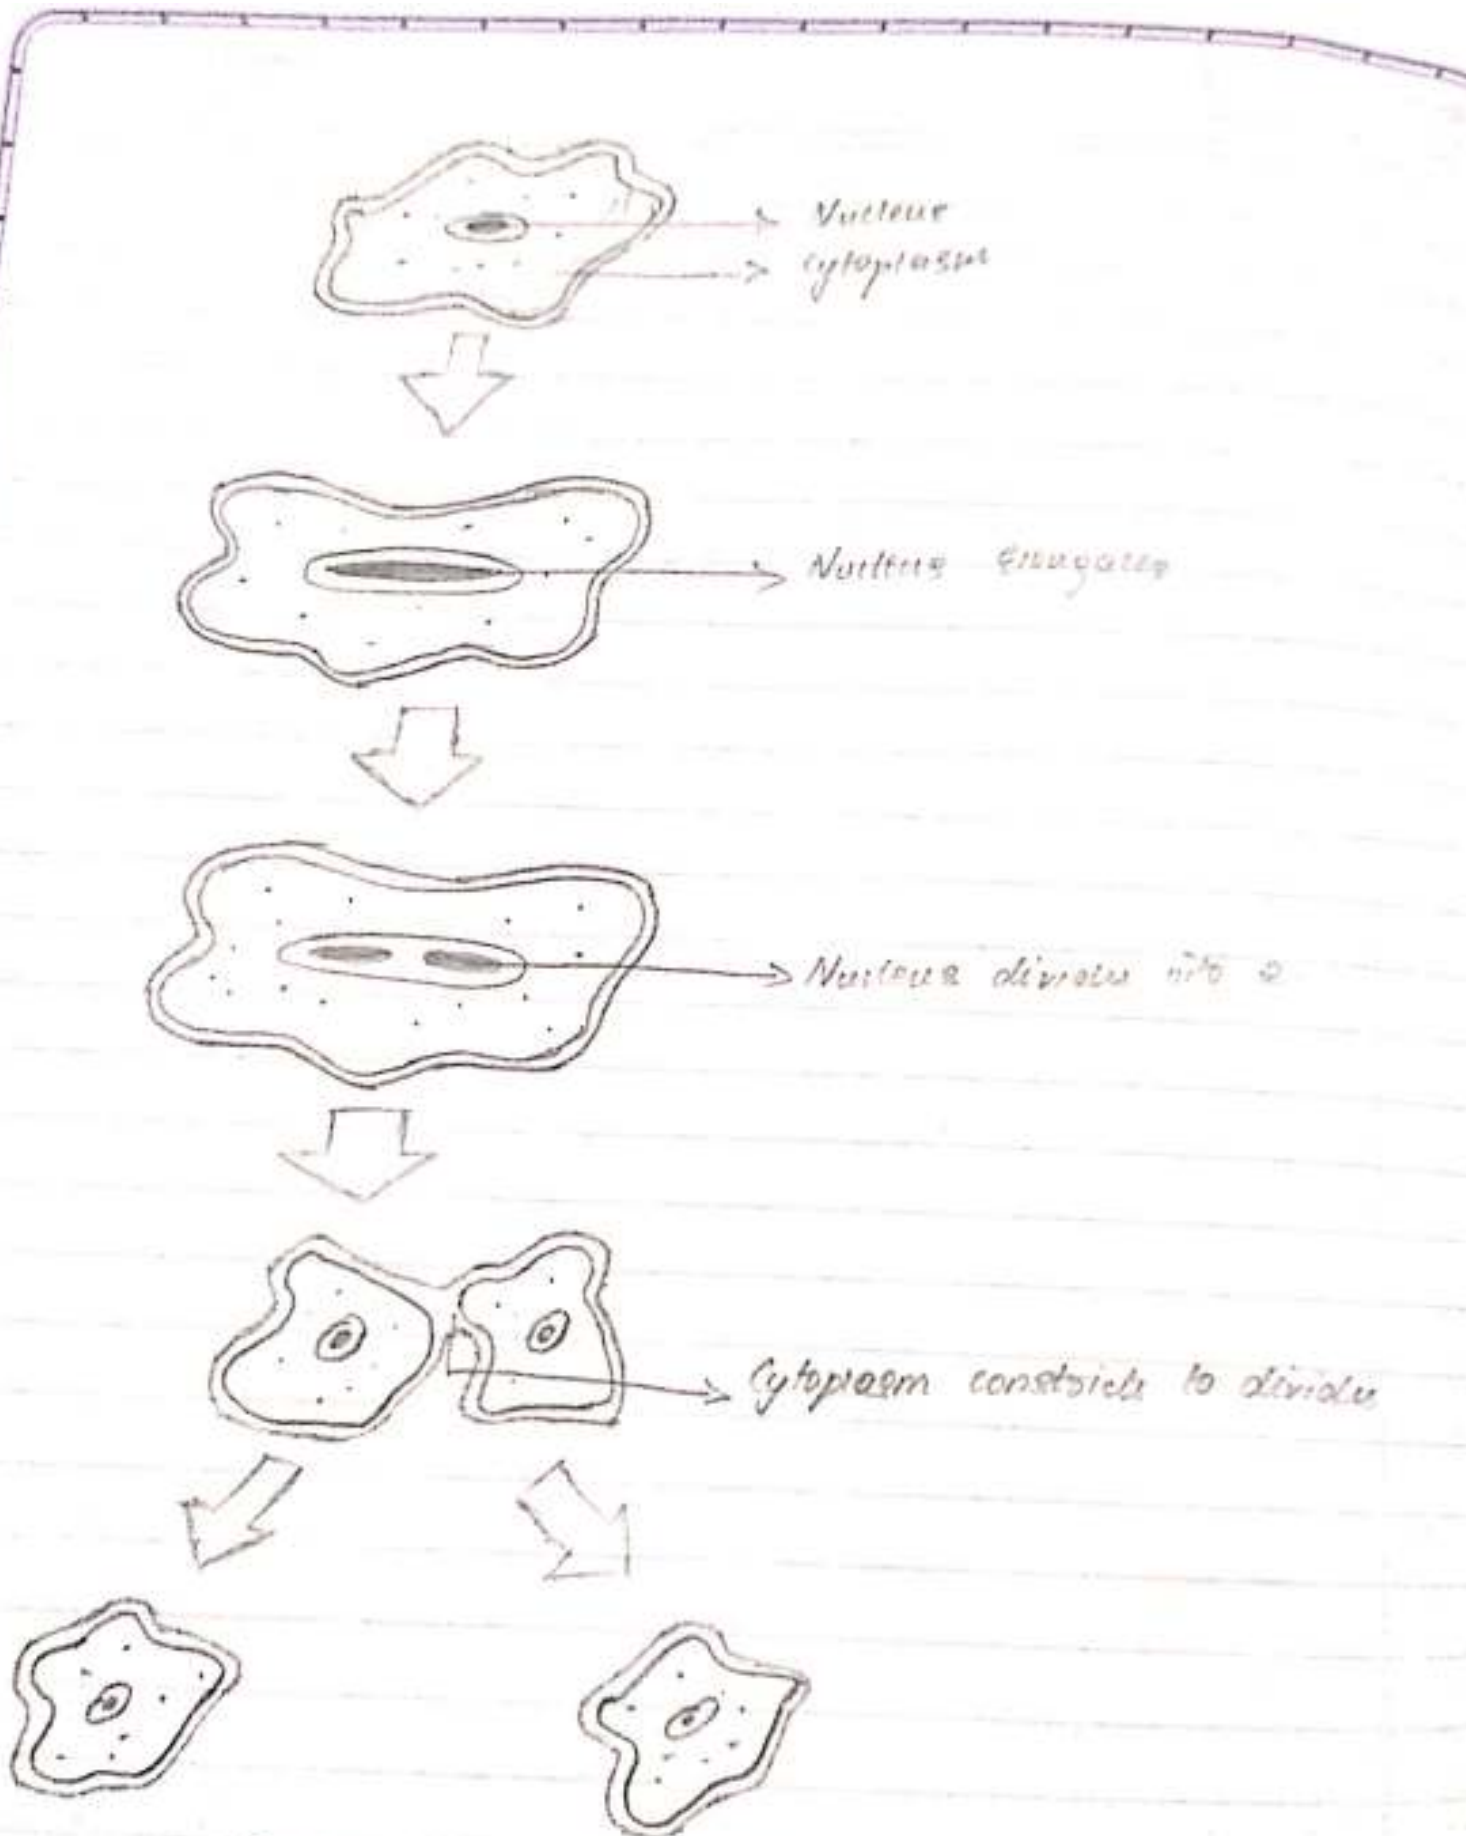 Nucleus
Cytoplasm
Nucleus Elongates
Nucleus divides into 2
Cytoplasm constricts to divides